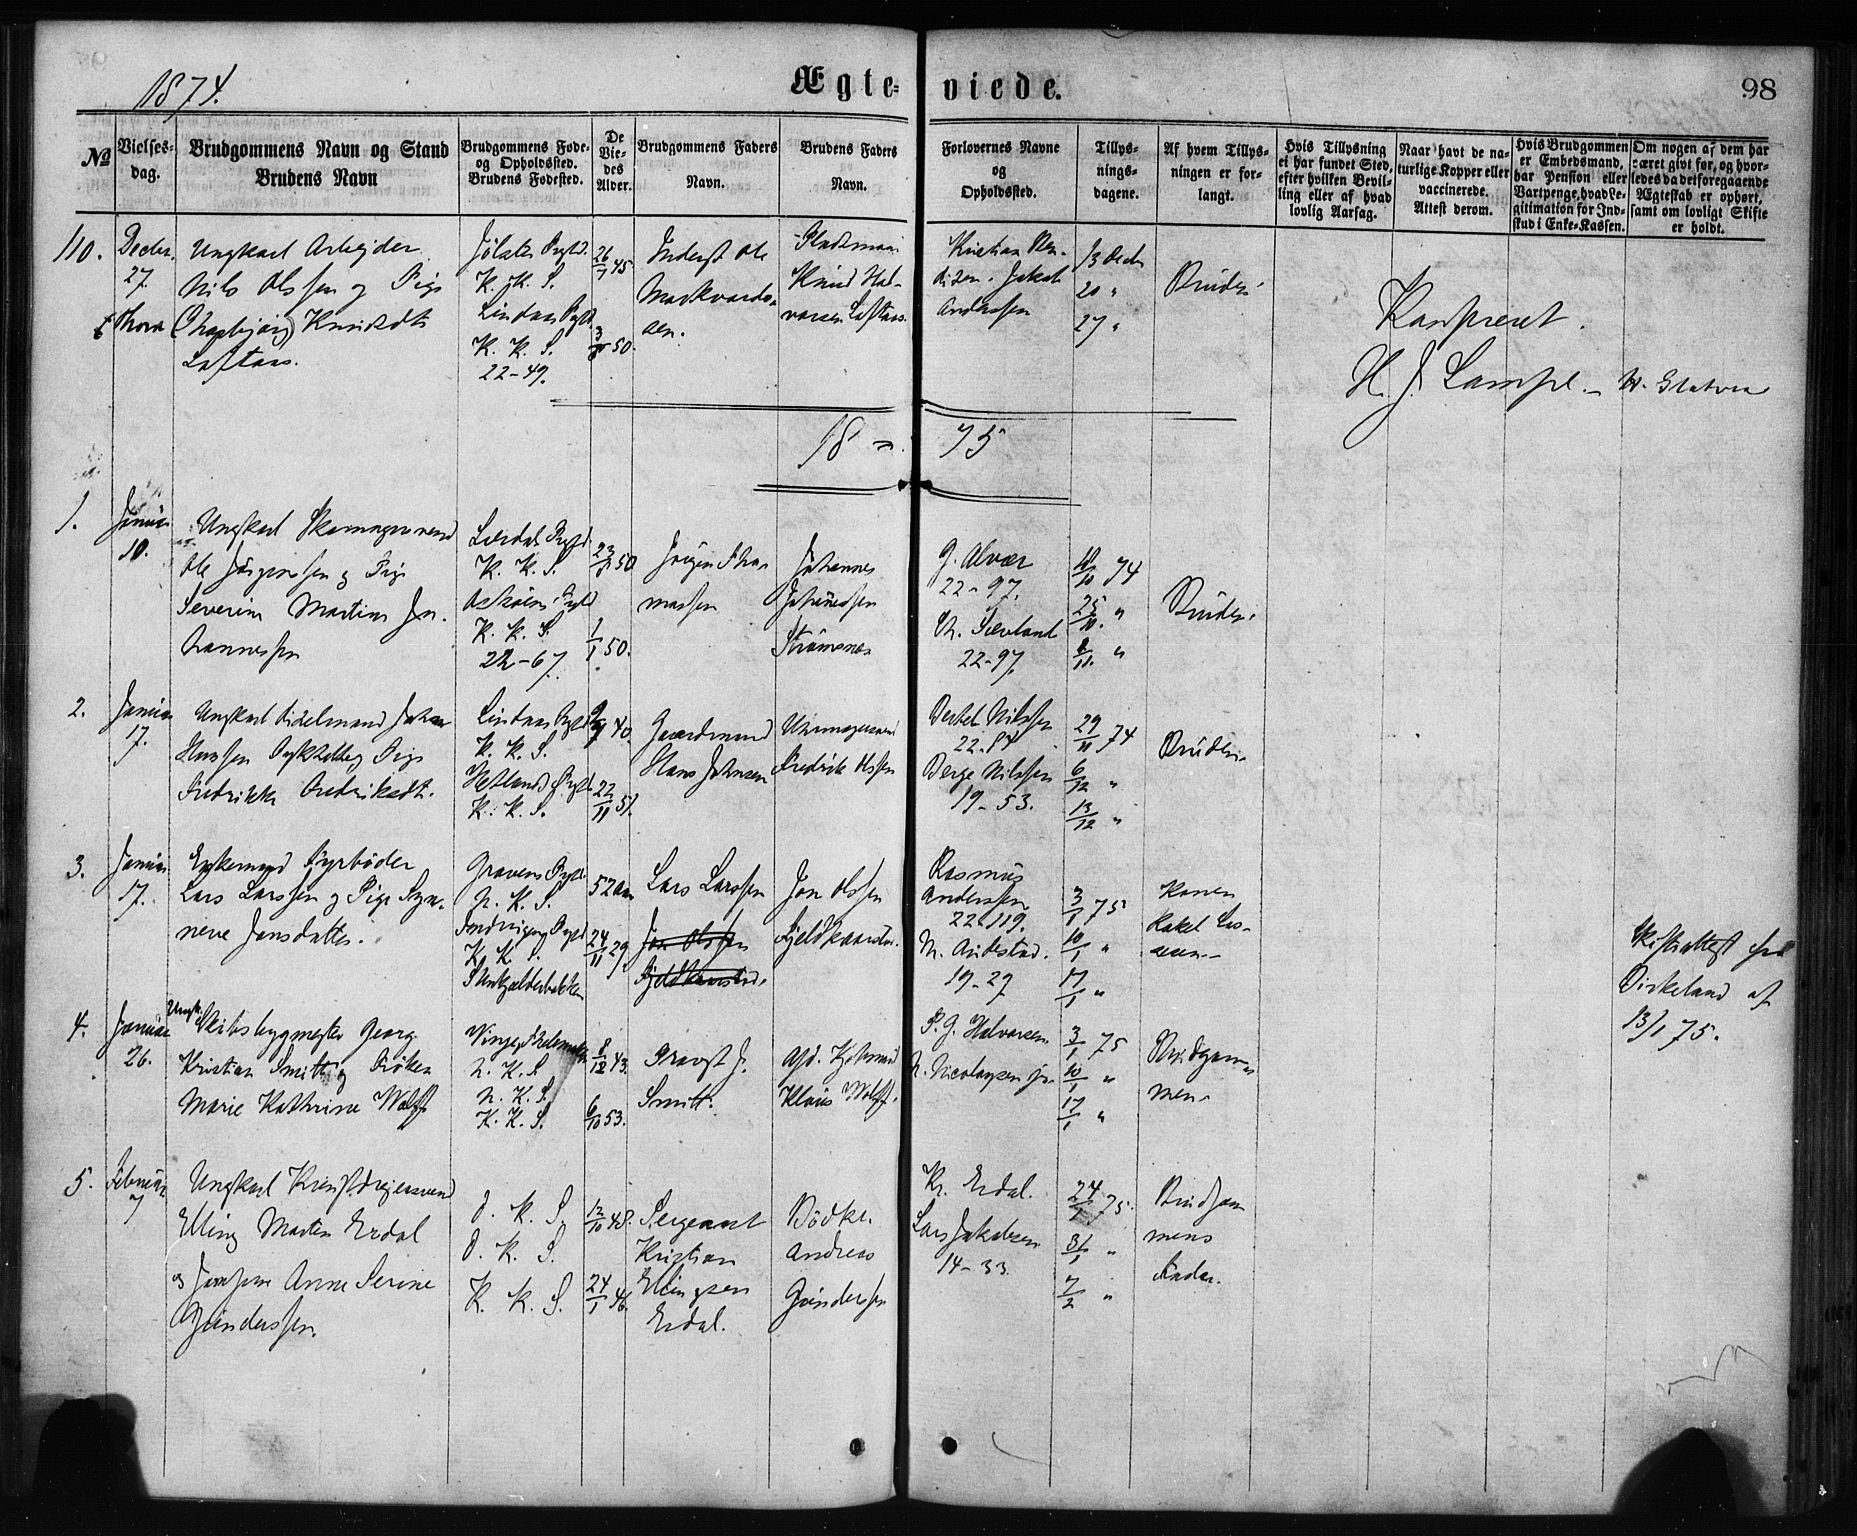 1874.
Ægte- viede.
98
No
Vielses-
dag.
Brudgommens Navn og Stand
Brudens Navn
Brudgommens Føde-
og Opholdssted.
Brudens Fødested.
De
Vie-
des
Alder.
Brudgommens Faders
Navn.
Brudens Faders
Navn.
Forlovernes Navne
og
Opholdssted.
Tillys-
nings-
dagene.
Af hvem Tillys-
ningen er for-
langt.
Hvis Tillysning
ei har fundet Sted,
efter hvilken Bevil-
ling eller af hvad
lovlig Aarsag.
Naar havt de na-
turlige Kopper eller
vaccinerede.
Attest derom.
Hvis Brudgommen
er Embedsmand,
har Pension eller
Vartpenge, hvad Le-
gitimation for Ind-
skud i Enke-Kassen.
Om nogen af dem har
været givt før, og hvor-
ledes da det foregaaende
Ægteskab er ophørt,
samt om lovligt Skifte
er holdt.
110.
Decbr.
27.
Ungkarl Arbejder
Nils Olssen og Pige
Knudsdt.
Loftaas.
Jølster Prgld.
K. K. S.
Lindaas Prgld.
K. K. S.
22-49.
26/7 45.
50.
Inderst Ole
Markvards-
sen.
Pladsmand
Knud Hal-
vorsen Loftaas.
Kristian
Jakob
Anderssen
13 Decbr
20 "
27 "
Bruden.
Konfereret.
H. J. Lampe.
18 - 75
1.
Januar
10.
Ungkarl Skomagersvend
Ole Jørgenssen og Pige
Severine Martine Jo-
hannessen
Lærdals Prgld.
K. K. S.
Askøens Prgld
K. K. S.
22-67.
50
1/1 50.
Jørgen Tho-
massen
Johannes
Johannessen
Strømsnes
G. Alver
22-97.
22-97.
74
25/10. "
8/11. "
Bruden.
2.
Januar
17.
Ungkarl
Hanssen og Pige
Fredrikke Fredriksdt.
Lindaas Prgld
K. K. S.
Hetlands Prgld.
K. K. S.
40.
22/11 51.
Gaardmand
Hans Johnsen
Uhrmagersvend
Fredrik Olssen
Bertel Nilssen
22-84
Berge Nilssen
19-53.
29/11 74
6/12 "
13/12 "
Bruden.
3.
Januar
17.
Enkemand Fyrbøder
Lars Larssen og Pige Syn-
neve Jonsdatter.
Gravens Prgld
N. K. S.
Prgld
K. K. S.
52 Aar
24/11 29.
Lars Larssen
Jon Olssen
Jon Olssen
Rasmus
Anderssen
22-119.
19-27
3/1 75
10/1 "
17/1 "
Konen
Rakel Las-
sen.
Skifteattest fra
Birkeland af
13/1 75.
4.
Januar
26.
Ungk.
Skibsbygmester Georg
Kristian Smitt og Frøken
Marie Kathrine Wolff
N. K. S.
N. K. S.
K. K. S.
8/12 43.
6/10 53.
Provst J.
Smitt.
Afd. Kjøbmand
Klaus Wolff.
P. G. Halvorsen
N. Nicolaysen jr.
3/1 75
10/1 "
17/1 "
Brudgom-
men.
5.
Februar
7
Ungkarl Kunstdrejersvend
Elling Martin Erdal
og Jomfru Anne Serine
Gunderssen.
D. K. S.
D. K. S.
K. K. S.
12/10 48.
24/1 46.
Sergeant
Kristian
Ellingsen
Erdal.
Bødker
Andreas
Gunderssen
Kr. Erdal.
Lars Jakobsen
14-33.
24/1 75.
31/1 "
7/2 "
Brudgom
mens
Fader.